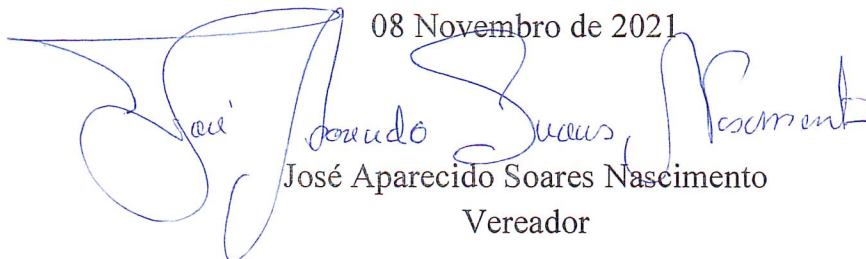 08 Novembro de 2021
José Aparecido Soares Nascimento
José Aparecido Soares Nascimento
Vereador